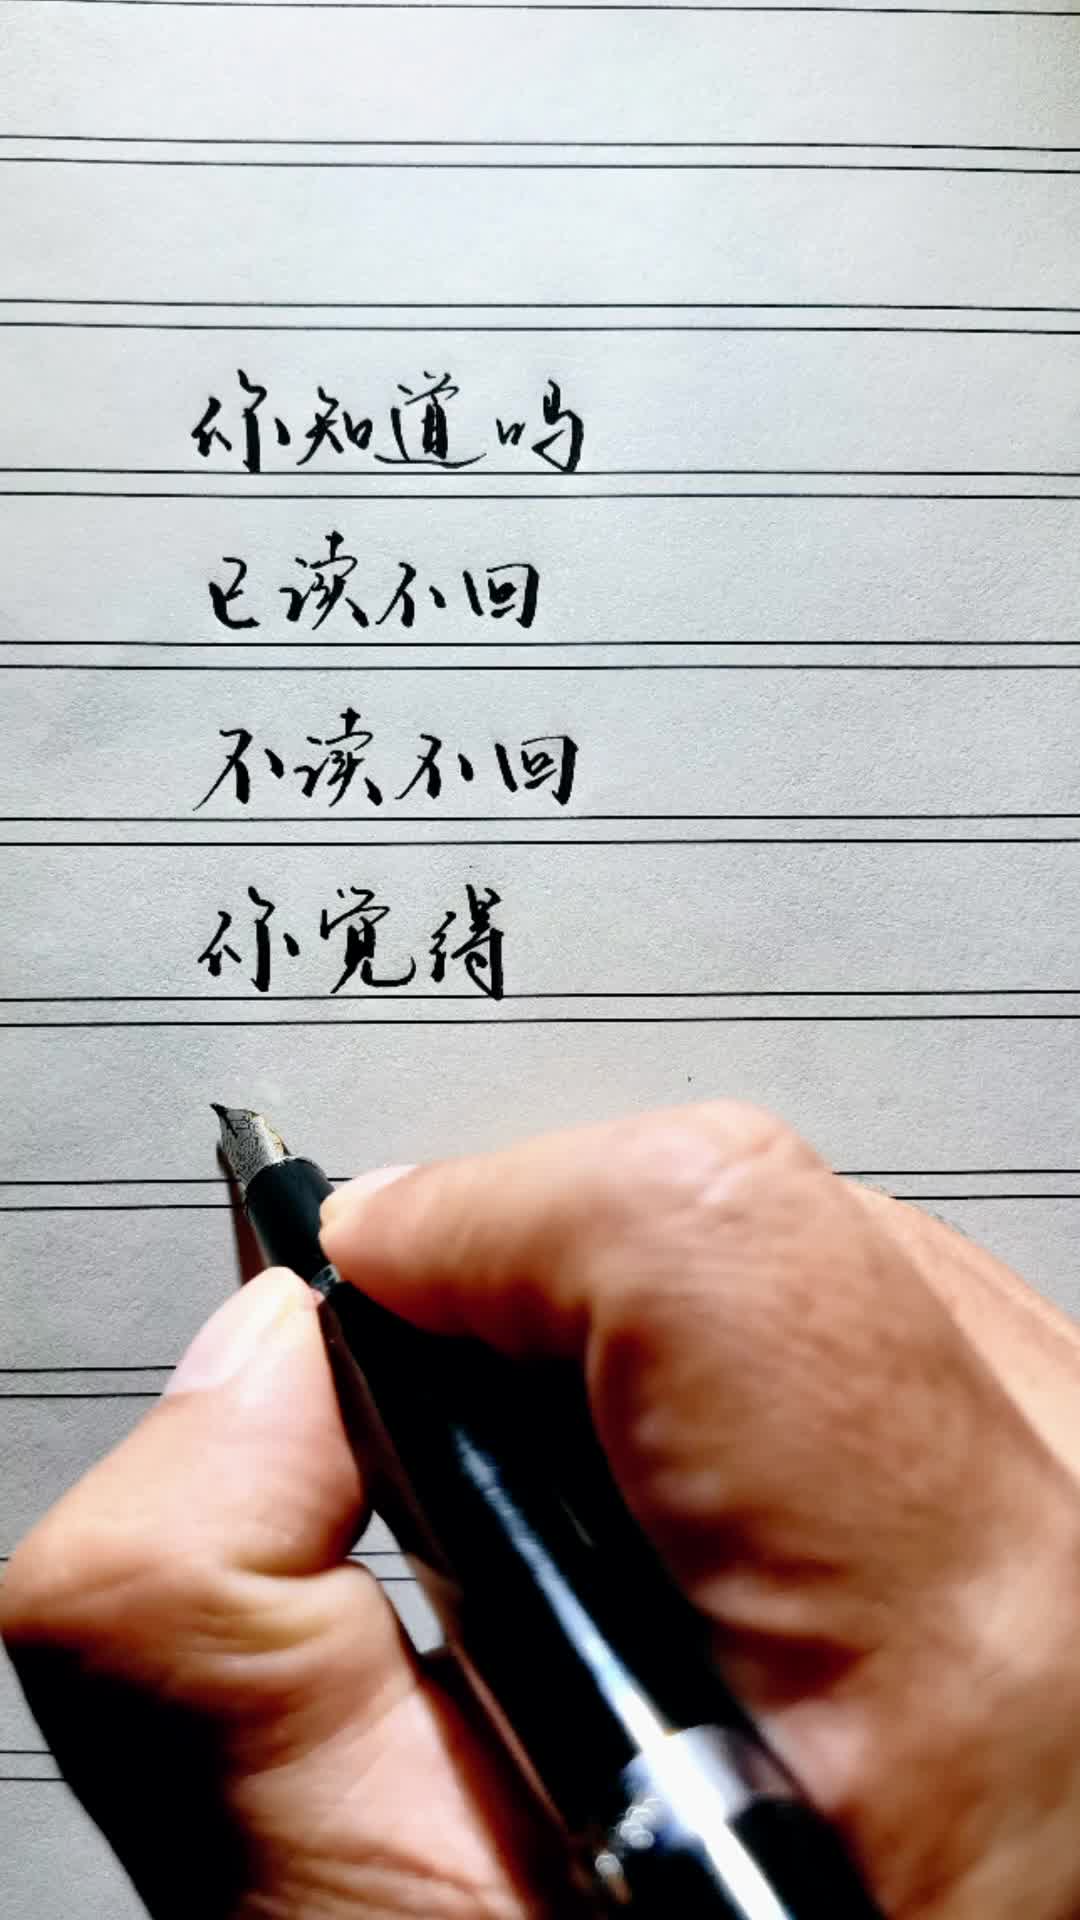 你知道吗
已读不回
不读不回
你觉得